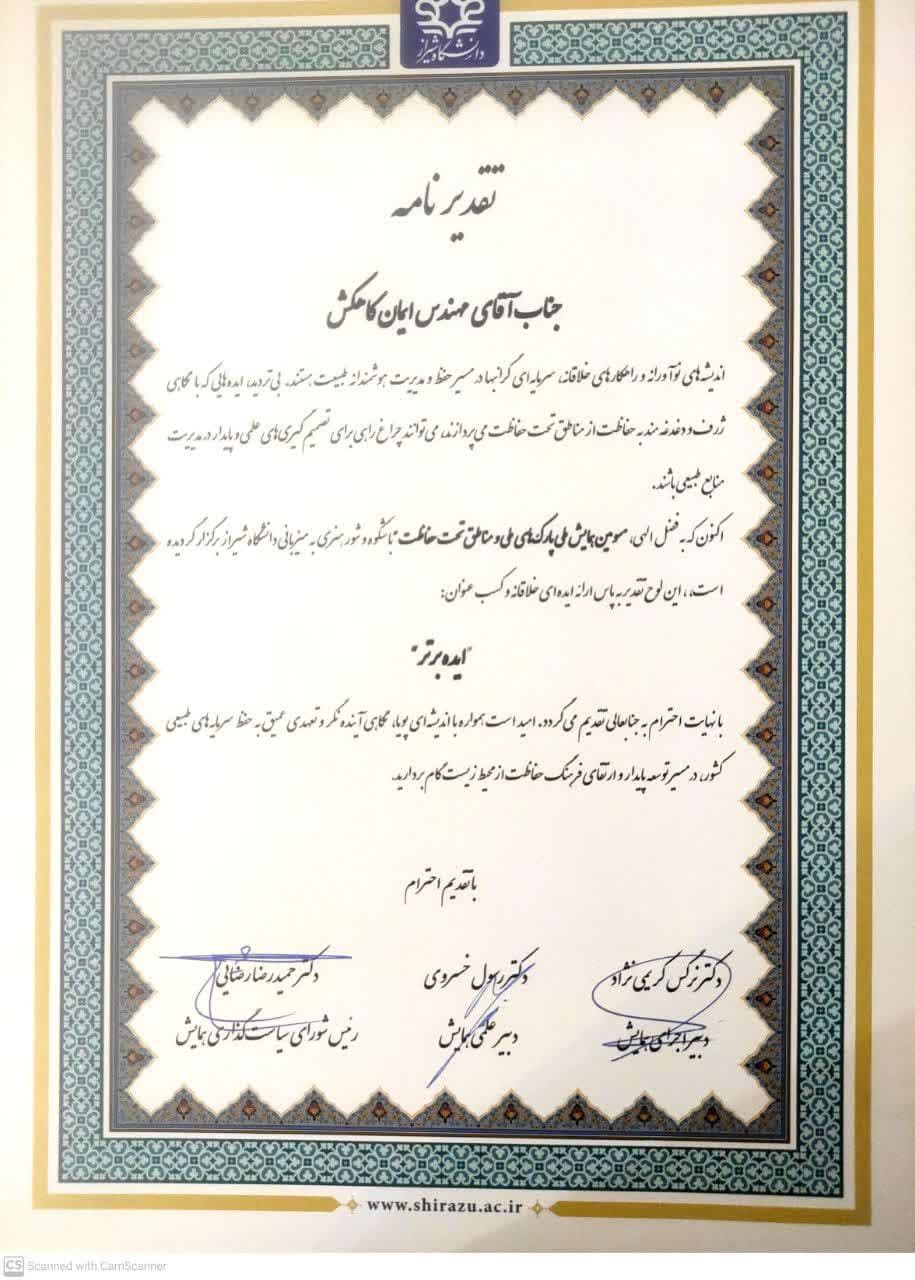 دانشگاه شیراز
تقدیر نامه
جناب آقای مهندس ایمان کاهکش
اندیشه‌های نوآورانه و راهکارهای خلاقانه، سرمایه‌ای گرانبها در مسیر حفظ و مدیریت هوشمندانه طبیعت هستند. بی‌تردید، ایده‌هایی که با نگاهی
ژرف و دغدغه مند به حفاظت از مناطق تحت حفاظت می‌پردازند، می‌توانند چراغ راهی برای تصمیم گیری‌های علمی و پایدار در مدیریت
منابع طبیعی باشند.
اکنون که به فضل الهی، سومین همایش ملی پارک‌های ملی و مناطق تحت حفاظت با شکوه و شور هنری به میزبانی دانشگاه شیراز برگزار گردیده
است،، این لوح تقدیر به پاس ارائه ایده‌ای خلاقانه و کسب عنوان:
"ایده برتر"
با نهایت احترام به جنابعالی تقدیم می‌گردد. امید است همواره با اندیشه‌ای پویا، نگاهی آینده نگر و تعهدی عمیق به حفظ سرمایه‌های طبیعی
کشور، در مسیر توسعه پایدار و ارتقای فرهنگ حفاظت از محیط زیست گام بردارید.
با تقدیم احترام
دکتر نرگس کریمی نژاد دکتر رسول خسروی دکتر حمیدرضا رضائی
دبیر اجرای همایش دبیر علمی همایش رئیس شورای سیاست گذاری همایش
www.shirazu.ac.ir
CS Scanned with CamScanner